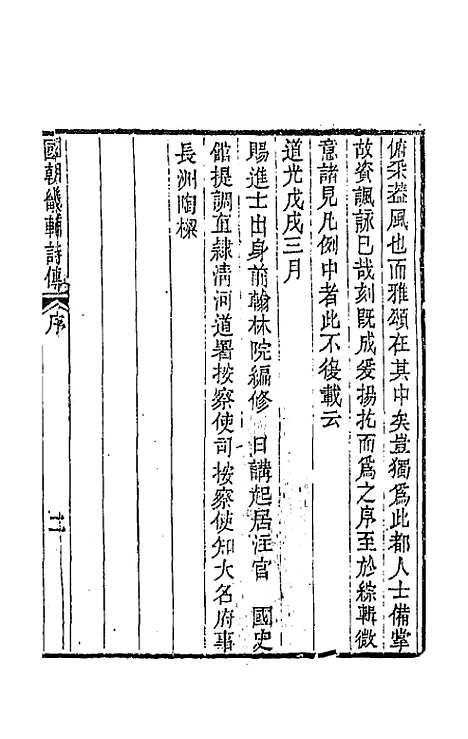 俯采葢風也而雅頌在其中矣豈獨爲此都人士備掌
故資諷詠已哉刻既成爰揚扢而爲之序至於綜輯微
意諸見凡例中者此不復載云
道光戊戌三月
賜進士出身前翰林院編修 日講起居注官 國史
館提調直隸清河道署按察使司按察使知大名府事
長洲陶樑
國朝畿輔詩傳 序 二